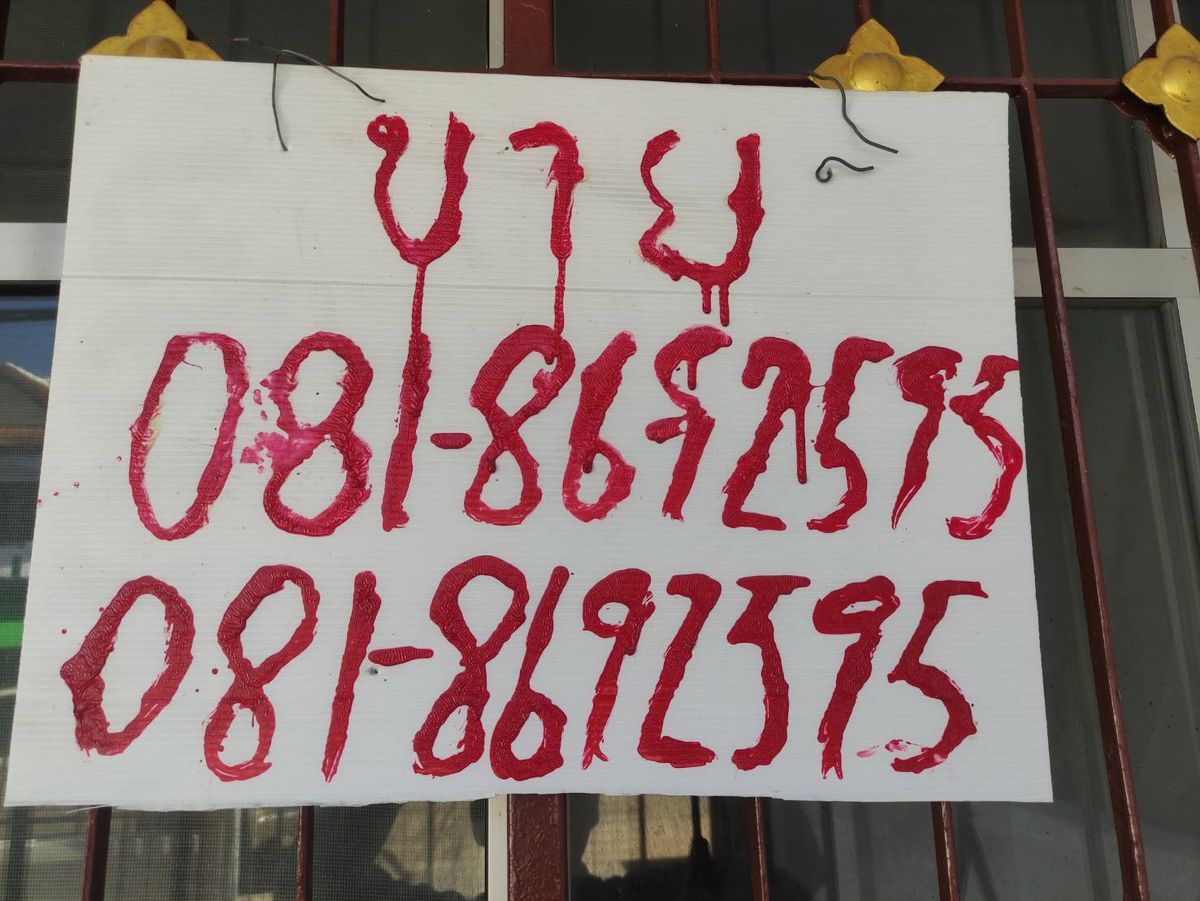 ขาย
081-8692595
081-8692595